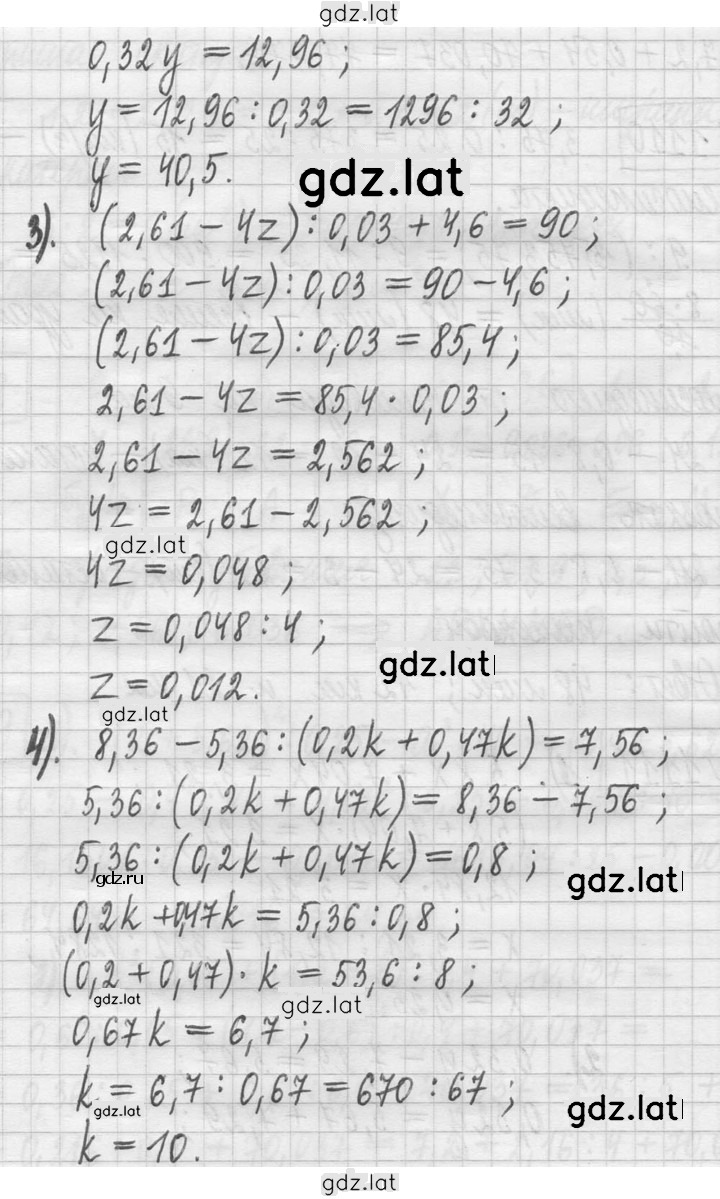 gdz.lat
0,32y = 12,96 ;
y = 12,96 : 0,32 = 1296 : 32 ;
y = 40,5.
gdz.lat
3). (2,61 − 4z) : 0,03 + 4,6 = 90 ;
(2,61 − 4z) : 0,03 = 90 − 4,6 ;
(2,61 − 4z) : 0,03 = 85,4 ;
2,61 − 4z = 85,4 · 0,03 ;
2,61 − 4z = 2,562 ;
4z = 2,61 − 2,562 ;
gdz.lat
4z = 0,048 ;
z = 0,048 : 4 ;
gdz.lat
z = 0,012.
gdz.lat
4). 8,36 − 5,36 : (0,2k + 0,47k) = 7,56 ;
5,36 : (0,2k + 0,47k) = 8,36 − 7,56 ;
5,36 : (0,2k + 0,47k) = 0,8 ;
gdz.ru
gdz.lat
0,2k + 0,47k = 5,36 : 0,8 ;
(0,2 + 0,47) · k = 53,6 : 8 ;
gdz.lat
gdz.lat
0,67k = 6,7 ;
k = 6,7 : 0,67 = 670 : 67 ;
gdz.lat
gdz.lat
k = 10.
gdz.lat